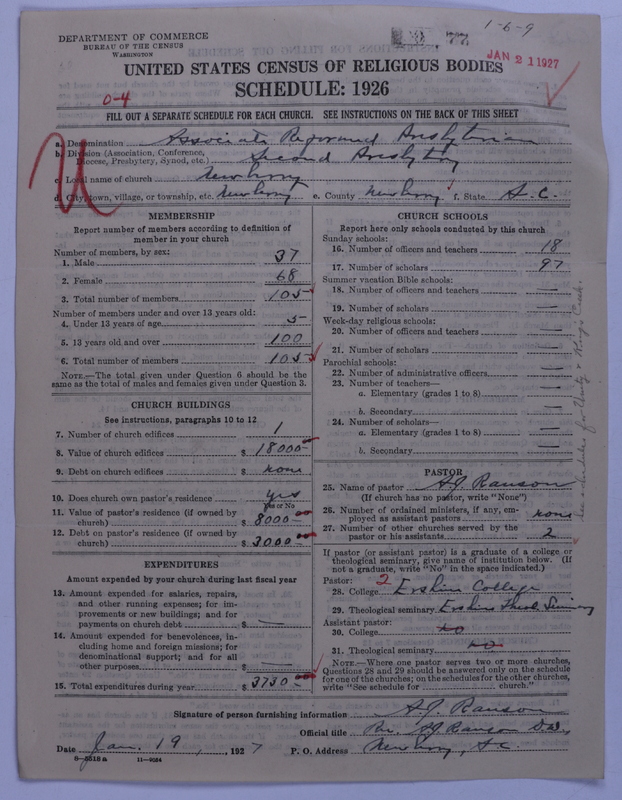 1-6-9
DEPARTMENT OF COMMERCE
BUREAU OF THE CENSUS
WASHINGTON
77
JAN 21 1927
UNITED STATES CENSUS OF RELIGIOUS BODIES
SCHEDULE: 1926
0-4
FILL OUT A SEPARATE SCHEDULE FOR EACH CHURCH. SEE INSTRUCTIONS ON THE BACK OF THIS SHEET
a. Denomination Associate Reformed Presbyterian
b. Division (Association, Conference, Diocese, Presbytery, Synod, etc.) Second Presbytery
c. Local name of church Newberry
d. City, town, village, or township, etc. Newberry e. County Newberry f. State S.C.
MEMBERSHIP
Report number of members according to definition of
member in your church
Number of members, by sex:
1. Male 37
2. Female 68
3. Total number of members 105
Number of members under and over 13 years old:
4. Under 13 years of age 5
5. 13 years old and over 100
6. Total number of members 105
NOTE.—The total given under Question 6 should be the
same as the total of males and females given under Question 3.
CHURCH BUILDINGS
See instructions, paragraphs 10 to 12
7. Number of church edifices 1
8. Value of church edifices $ 18000
9. Debt on church edifices $ none
10. Does church own pastor's residence yes
Yes or No
11. Value of pastor's residence (if owned by
church) $ 8000
12. Debt on pastor's residence (if owned by
church) $ 3000
EXPENDITURES
Amount expended by your church during last fiscal year
13. Amount expended for salaries, repairs,
and other running expenses; for im-
provements or new buildings; and for
payments on church debt $ —
14. Amount expended for benevolences, in-
cluding home and foreign missions; for
denominational support; and for all
other purposes $ —
15. Total expenditures during year $ 3730
CHURCH SCHOOLS
Report here only schools conducted by this church
Sunday schools:
16. Number of officers and teachers 18
17. Number of scholars 97
Summer vacation Bible schools:
18. Number of officers and teachers —
19. Number of scholars —
Week-day religious schools:
20. Number of officers and teachers —
21. Number of scholars —
Parochial schools:
22. Number of administrative officers —
23. Number of teachers—
a. Elementary (grades 1 to 8) —
b. Secondary —
24. Number of scholars—
a. Elementary (grades 1 to 8) —
b. Secondary —
PASTOR
25. Name of pastor A.J. Ranson
(If church has no pastor, write "None")
26. Number of ordained ministers, if any, em-
ployed as assistant pastors none
27. Number of other churches served by the
pastor or his assistants 2
If pastor (or assistant pastor) is a graduate of a college or
theological seminary, give name of institution below. (If
not a graduate, write "No" in the space indicated.)
Pastor: 2
28. College Erskine College
29. Theological seminary Erskine Theol. Seminary
Assistant pastor:
30. College no
31. Theological seminary no
NOTE.—Where one pastor serves two or more churches,
Questions 28 and 29 should be answered only on the schedule
for one of the churches; on the schedules for the other churches,
write "See schedule for church."
See schedules of & King's Creek
Signature of person furnishing information A.J. Ranson
Official title Rev. A.J. Ranson D.D.
Date Jan. 19, 1927 P. O. Address Newberry, S.C.
8-5518a 11-9054